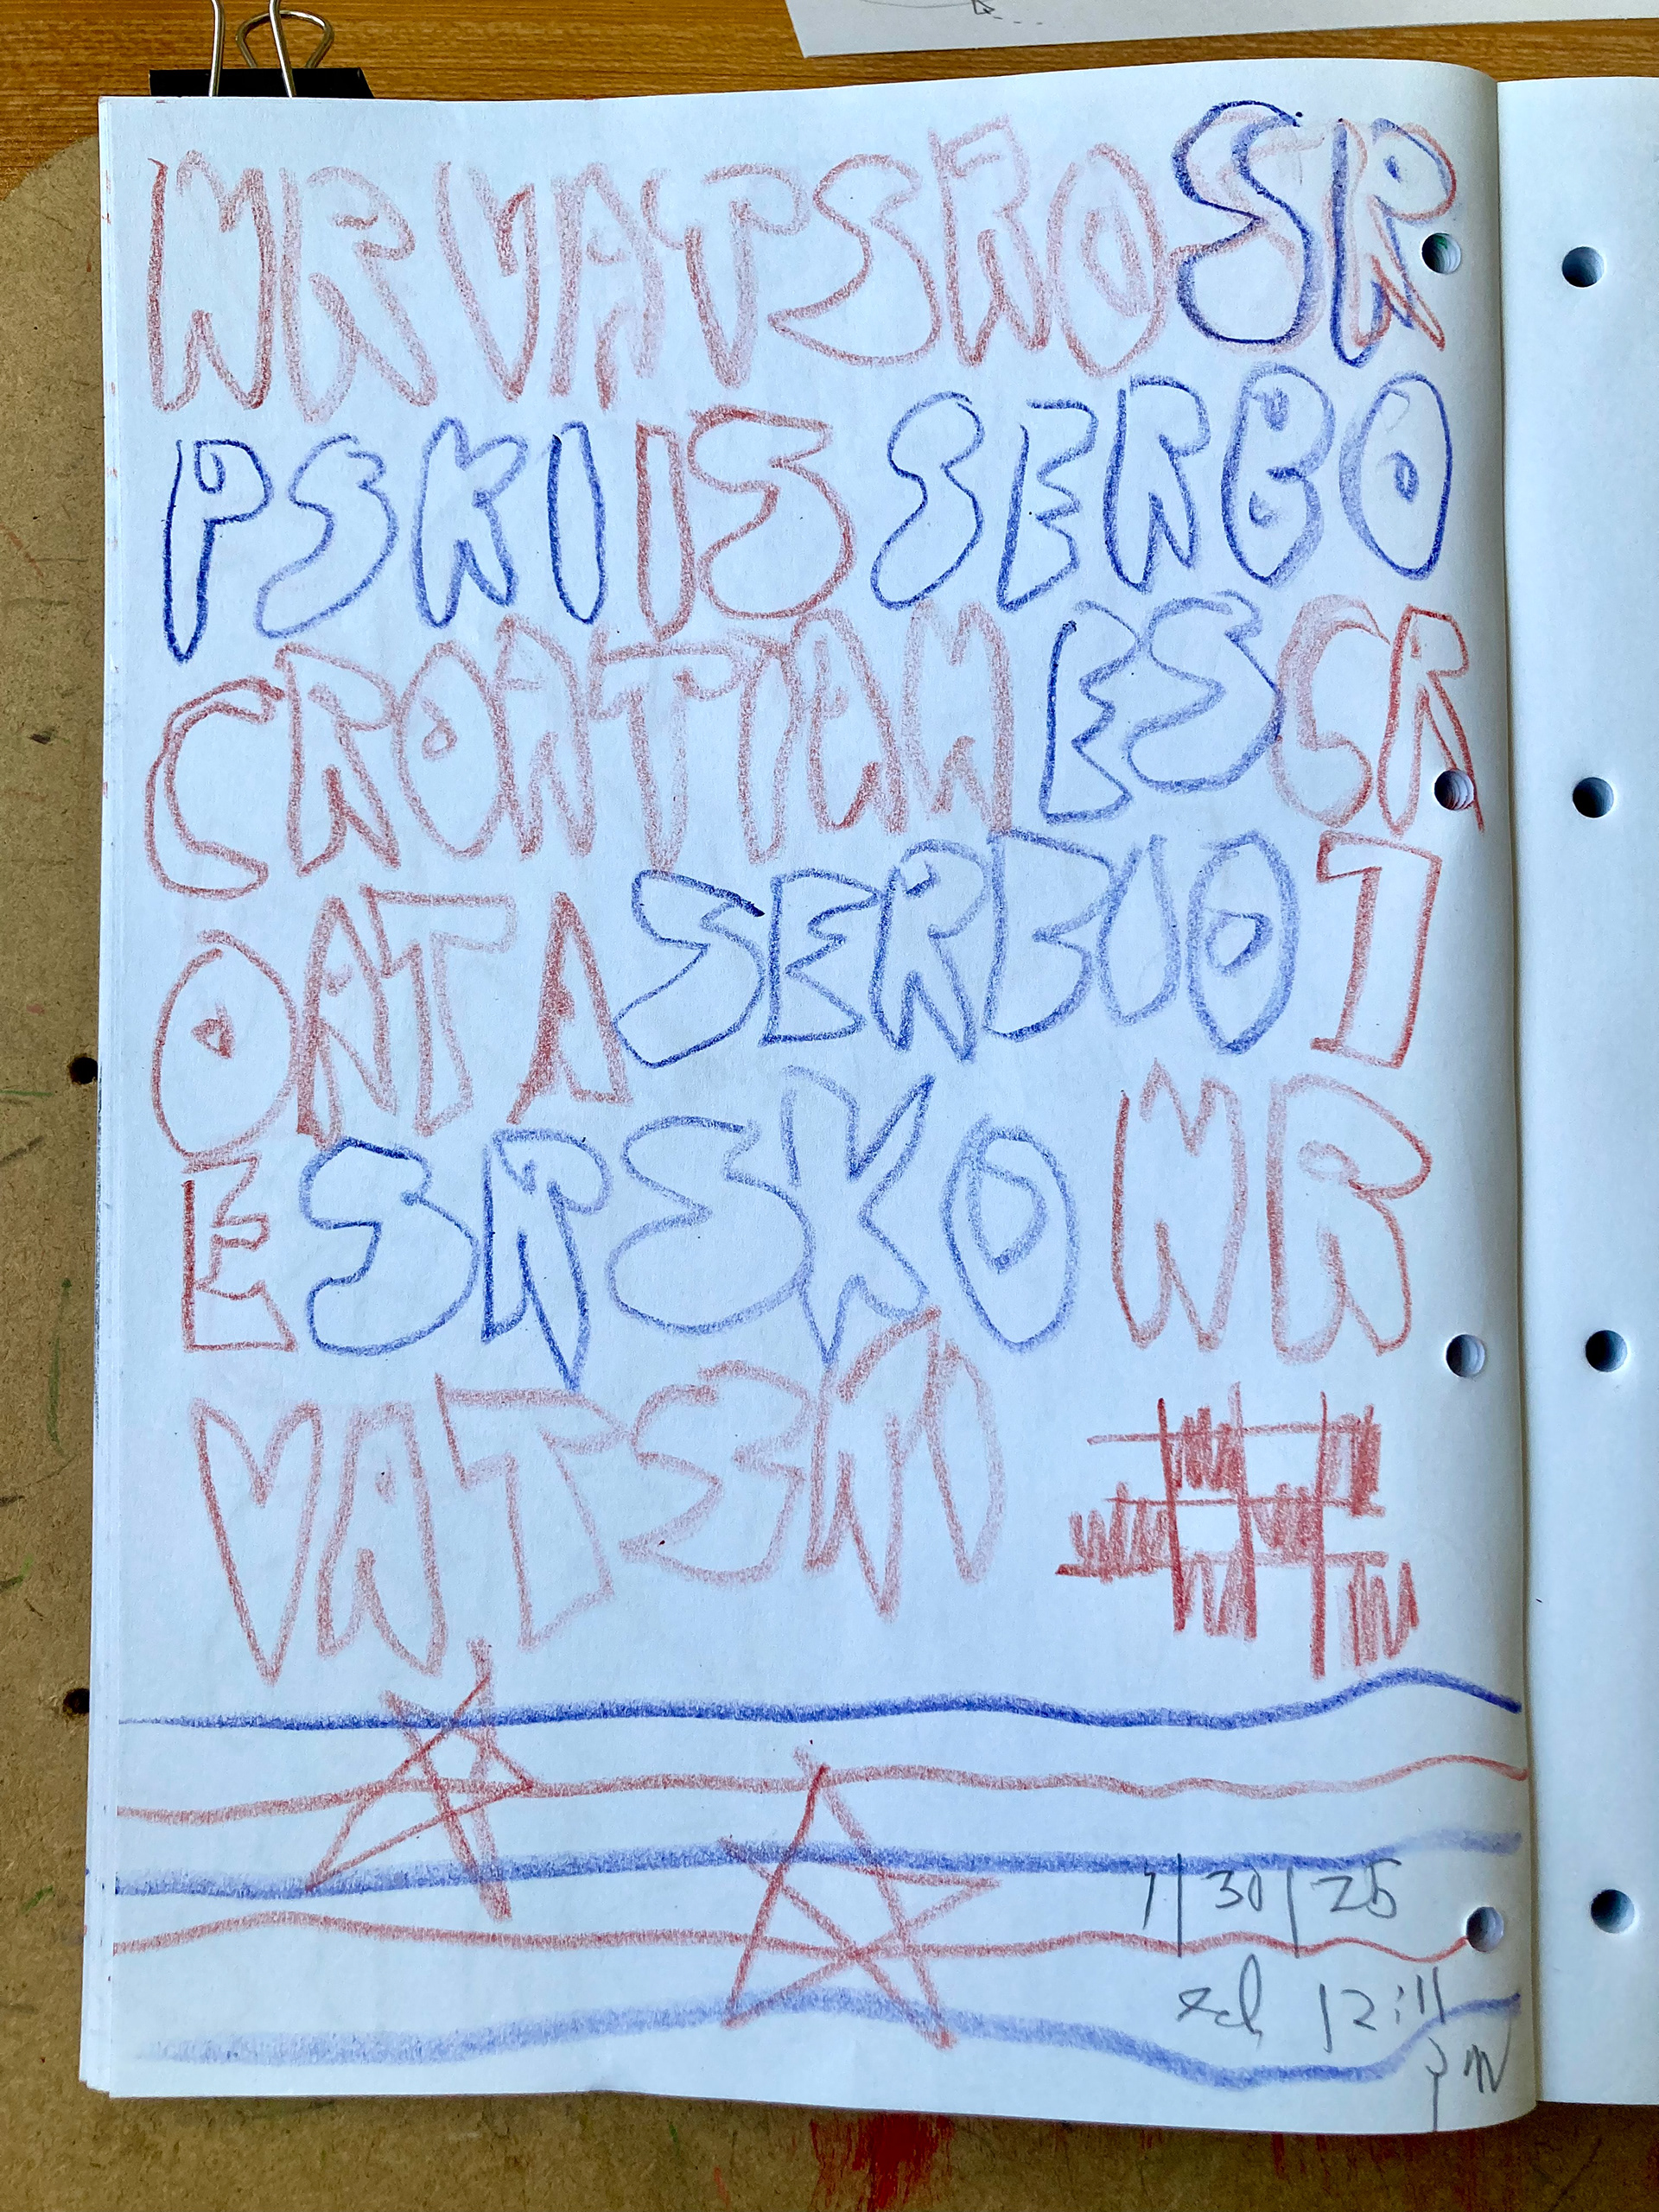 HRVATSKO SR
PSKI IS SERBO
CROATIAN ES CR
OATA SERBUO I
E SRSKO HR
VATSKI
7/30/25
12:11
pm